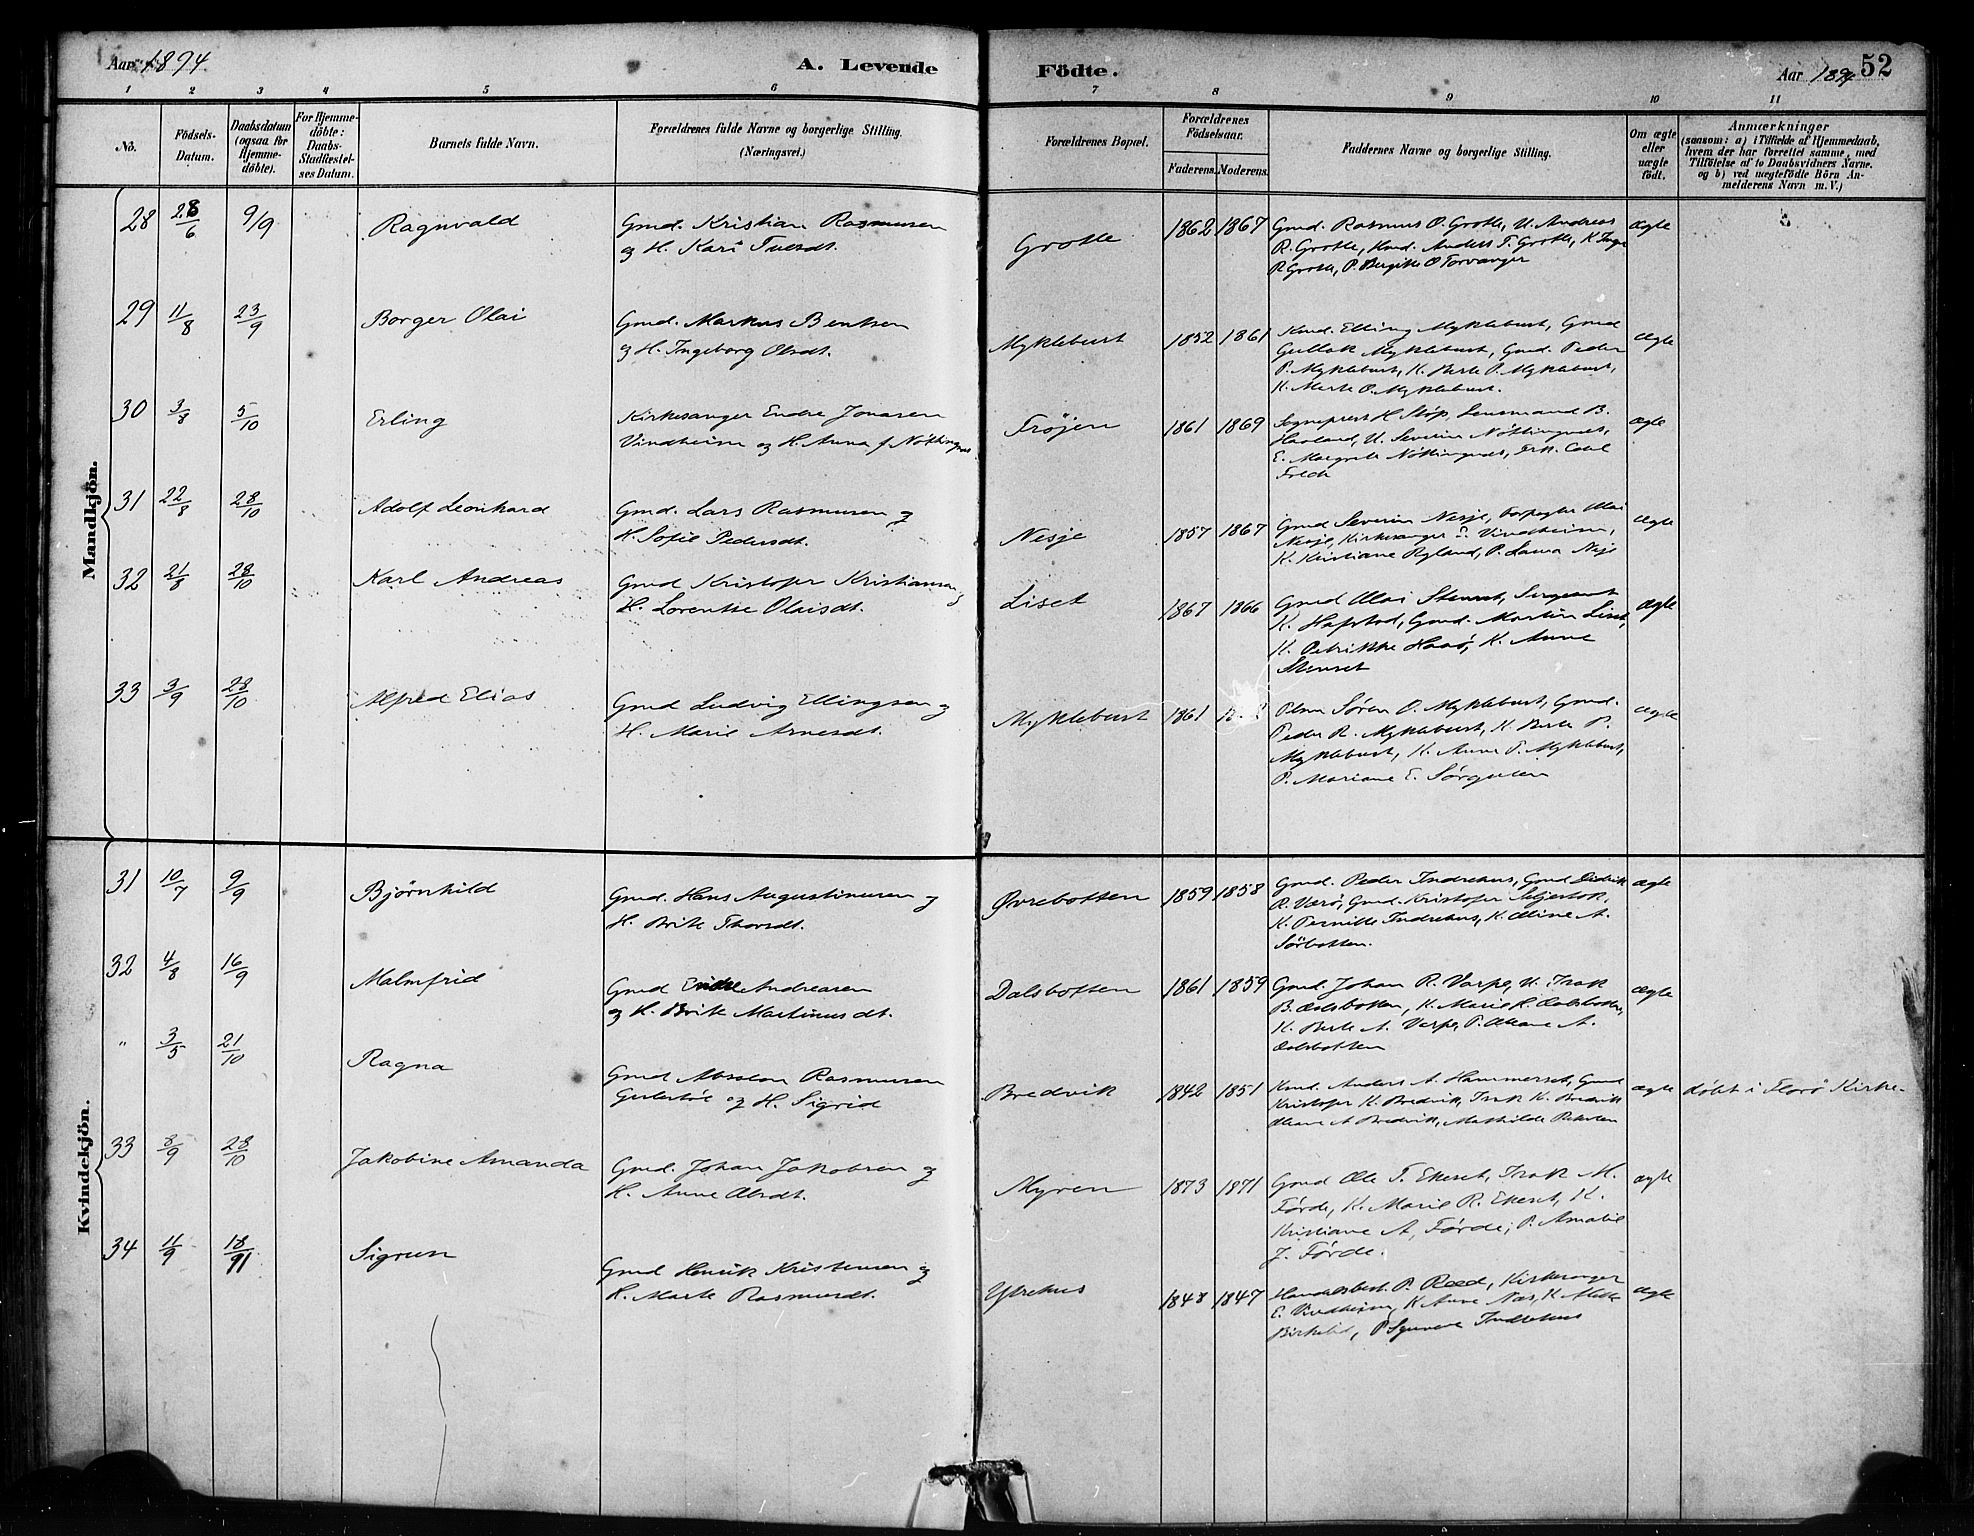 Aar 1894
A. Levende
Födte.
Aar 1894
52
1 2 3 4 5 6 7 8 9 10 11
No.
Födsels-
Datum.
Daabsdatum
(ogsaa for
Hjemme-
döbte).
For Hjemme-
döbte:
Daabs-
Stadfæstel-
ses Datum.
Barnets fulde Navn.
Forældrenes fulde Navne og borgerlige Stilling.
(Næringsvei.)
Forældrenes Bopæl.
Forældrenes
Födselsaar.
Faderens. Moderens.
Faddernes Navne og borgerlige Stilling.
Om ægte
eller
uægte
födt.
Anmærkninger
(saasom: a) i Tilfælde af Hjemmedaab,
hvem der har forrettet samme, med
Tilföielse af to Daabsvidners Navne.
og b) ved uægtefödte Börn An-
melderens Navn m. V.)
Mandkjön.
28 28/6 9/9 Ragnvald
Gmd. Kristian Rasmusen
og H. Kari Tuesdt.
Grotle 1862 1867
Gmd. Rasmus O. Grotle, U. Andreas
R. Grotle, Kmd. Anders T. Grotle, K. Inga
R Grotle, P. Bergitte O Torvanger
ægte
29 11/8 23/9 Borger Olai
Gmd. Markus Bentsen
og H. Ingeborg Olsdt.
Myklebust 1852 1861
Kmd. Elling Myklebust, Gmd
Gullak Myklebust, Gmd. Peder
P. Myklebust, K. Berte P. Myklebust,
K. Marte O. Myklebust.
ægte
30 3/8 5/10 Erling
Kirkesanger Endre Jonasen
Vindheim og H. Anna f. Nöttingnes
Fröjen 1861 1869
Sogneprest H Stöp, Lensmand B.
Havland, U. Severin Nöttingnes,
E. Margrete Nöttingnes, Frk.
ægte
31 22/8 28/10 Adolf Leonhard
Gmd. Lars Rasmusen og
H. Sofie Pedersdt.
Nesje 1857 1867
Gmd Severin Nesje, Olai
Nesje, Kirkesanger E. Vindheim,
K. Kristiane Ryland, P. Laura Nesje
ægte
32 21/8 28/10 Karl Andreas
Gmd Kristofer Kristiansen og
H. Lorentse Olaisdt.
Liset 1867 1866
Gmd Olai Stenset, Sergeant
K. Hafstad, Gmd. Martin Liset,
K. Petrikke Haaö, K. Anne
Stenset
ægte
33 3/9 28/10 Alfred Elias
Gmd Ludvig Ellingsen og
H. Marie Arnesdt.
Myklebust 1861
Søren O. Myklebust, Gmd.
Peder R. Myklebust, K. Berte P.
Myklebust, K. Anne P. Myklebust,
P. Mariane E. Sørgulen
ægte
Kvindekjön.
31 10/7 9/9 Bjørnhild
Gmd. Hans Augustinusen og
H. Brite Thorsdt.
Øvrebotten 1859 1858
Gmd. Peder Indrehus, Gmd Didrik
R. Værö, Gmd. Kristofer
K. Pernille Indrehus, K. Oline A.
Sörbotten.
ægte
32 4/8 16/9 Malmfrid
Gmd Endre Andreasen
og H. Brite Martinusdt.
Dalsbotten 1861 1859
Gmd Johan R. Varpe, U. Isak
B. Dalsbotten, K. Marie R. Dalsbotten,
K. Berte A. Varpe, P. Oliane A.
Dalsbotten
ægte
" 3/5 21/10 Ragna
Gmd Absalon Rasmusen
og H. Sigrid
Bredvik 1842 1851
Kmd. Anders A. Hammerset, Gmd
Kristofer K. Bredvik, Isak K. Bredvik
Oliane A Bredvik, Mathilde
ægte
døbt i Florö Kirke.
33 8/9 28/10 Jakobine Amanda
Gmd. Johan Jakobsen og
H. Anne Olsdt.
Myren 1873 1871
Gmd Ole T. Ekeset, Isak M.
Førde, K. Marie R. Ekeset, K.
Kristiane A. Førde, P. Amalie
J. Førde.
ægte
34 11/9 18/11 Sigrun
Gmd Henrik Kristensen og
H. Marte Rasmusdt.
Ytrehus 1848 1847
Handelsbest. P. Reed, Kirkesanger
E. Vindheim, K Anne Nes, K Mette
Birkelid, P Synneve Indrehus
ægte